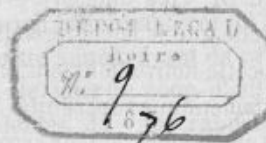 DÉPOT LÉGAL
Loire
N.º 9
1876